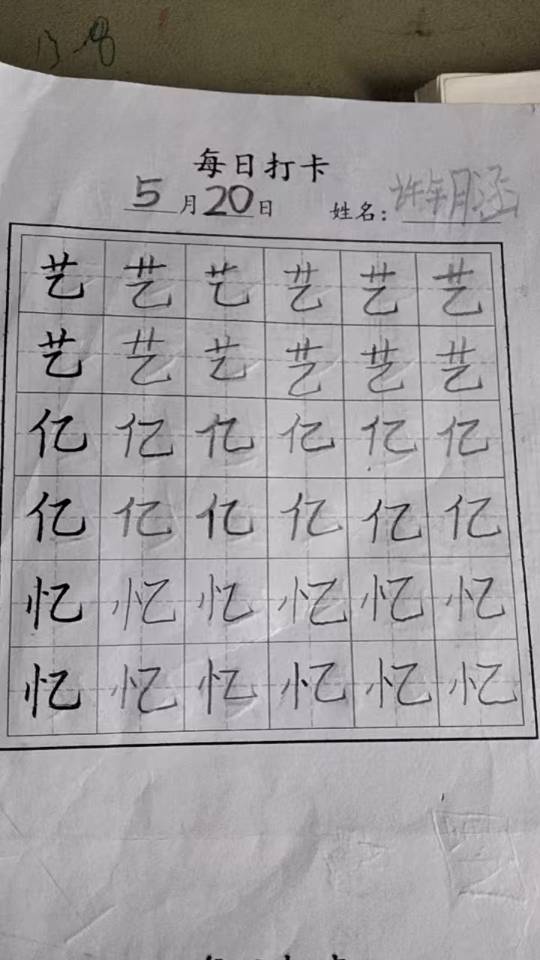 每日打卡
5月20日 姓名：许年月涵
艺艺艺艺艺艺
艺艺艺艺艺艺
亿亿亿亿亿亿
亿亿亿亿亿亿
忆忆忆忆忆忆
忆忆忆忆忆忆